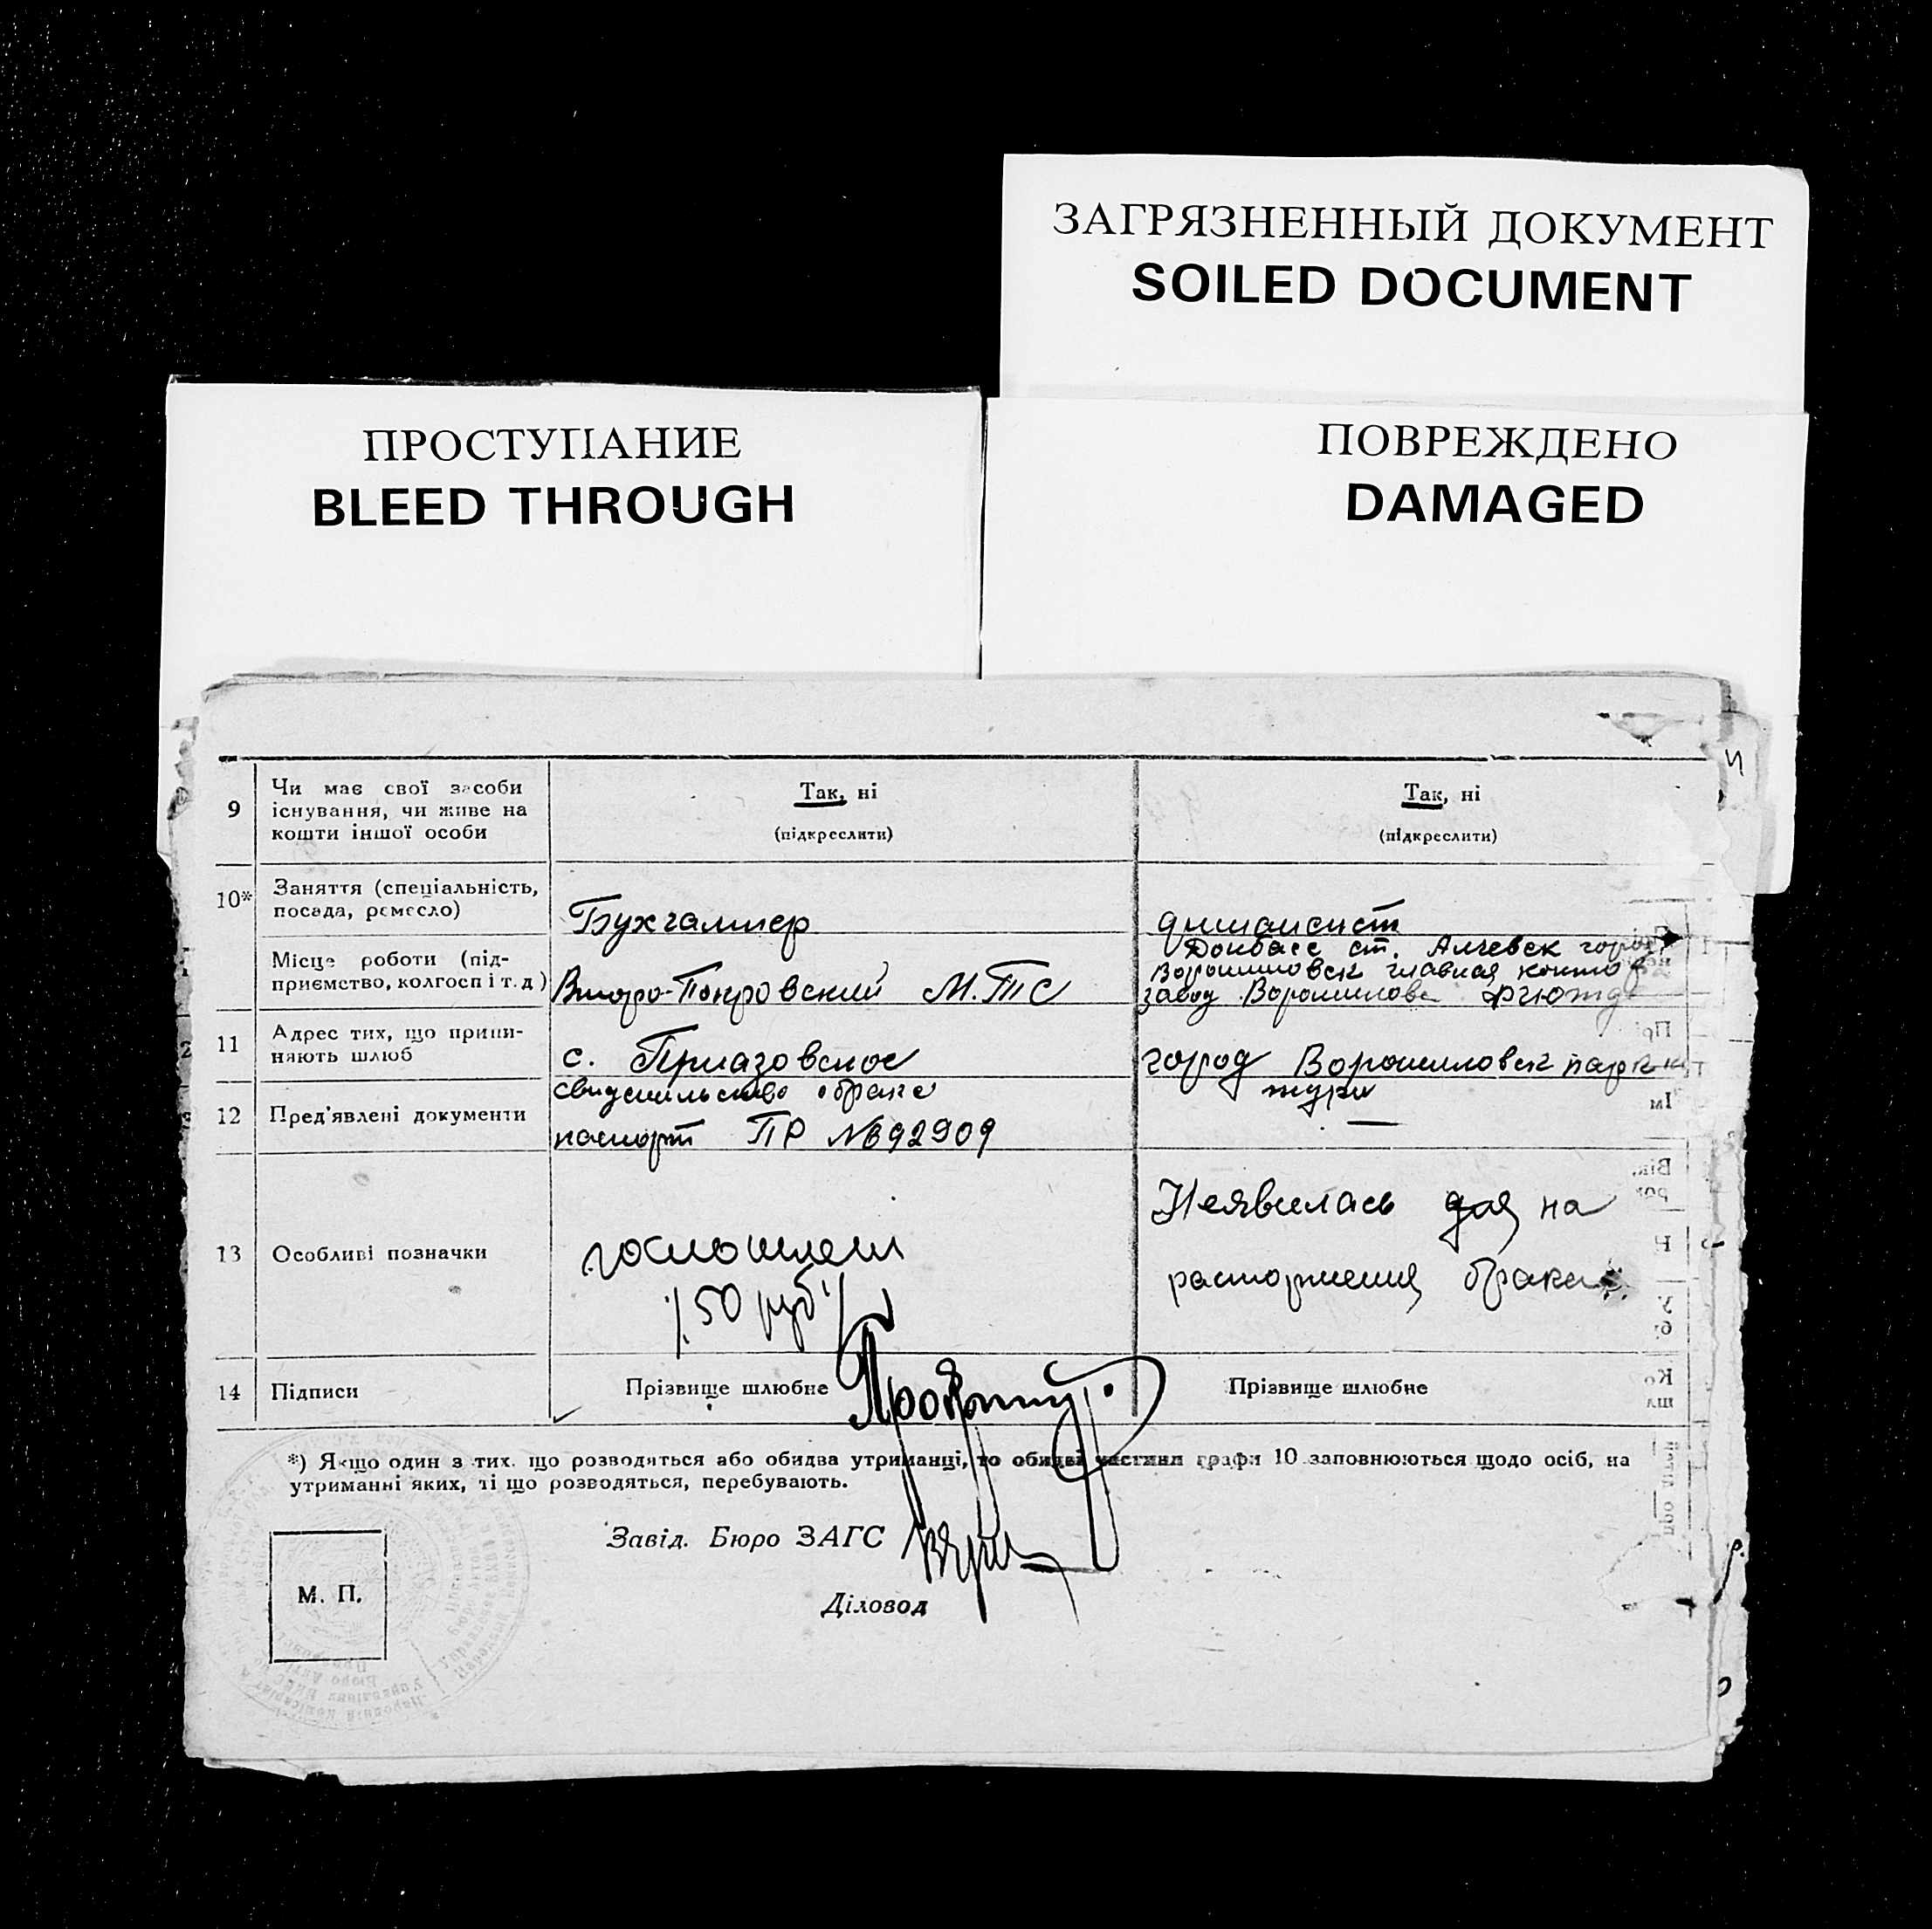 ЗАГРЯЗНЕННЫЙ ДОКУМЕНТ
SOILED DOCUMENT
ПРОСТУПАНИЕ
BLEED THROUGH
ПОВРЕЖДЕНО
DAMAGED
9
Чи має свої засоби
існування, чи живе на
кошти іншої особи
Так, ні
(підкреслити)
Так, ні
(підкреслити)
10*
Заняття (спеціальність,
посада, ремесло)
Бухгалтер
Місце роботи (під-
приємство, колгосп і т. д)
Второ-Покровский М.Т.С
Донбасс ст. Алчевск город
Ворошиловск главная
завод Ворошилова
11
Адрес тих, що припи-
няють шлюб
с. Приазовское
город Ворошиловск
12
Пред'явлені документи
свидетельство о браке
паспорт ПР № 692909
—
13
Особливі позначки
госпошлен
50 руб
Неявилась для на
расторжения брака
14
Підписи
Прізвище шлюбне
Прізвище шлюбне
*) Якщо один з тих, що розводяться або обидва утриманці, то обидві частини графи 10 заповнюються щодо осіб, на
утриманні яких, ті що розводяться, перебувають.
Завід. Бюро ЗАГС
М. П.
Діловод